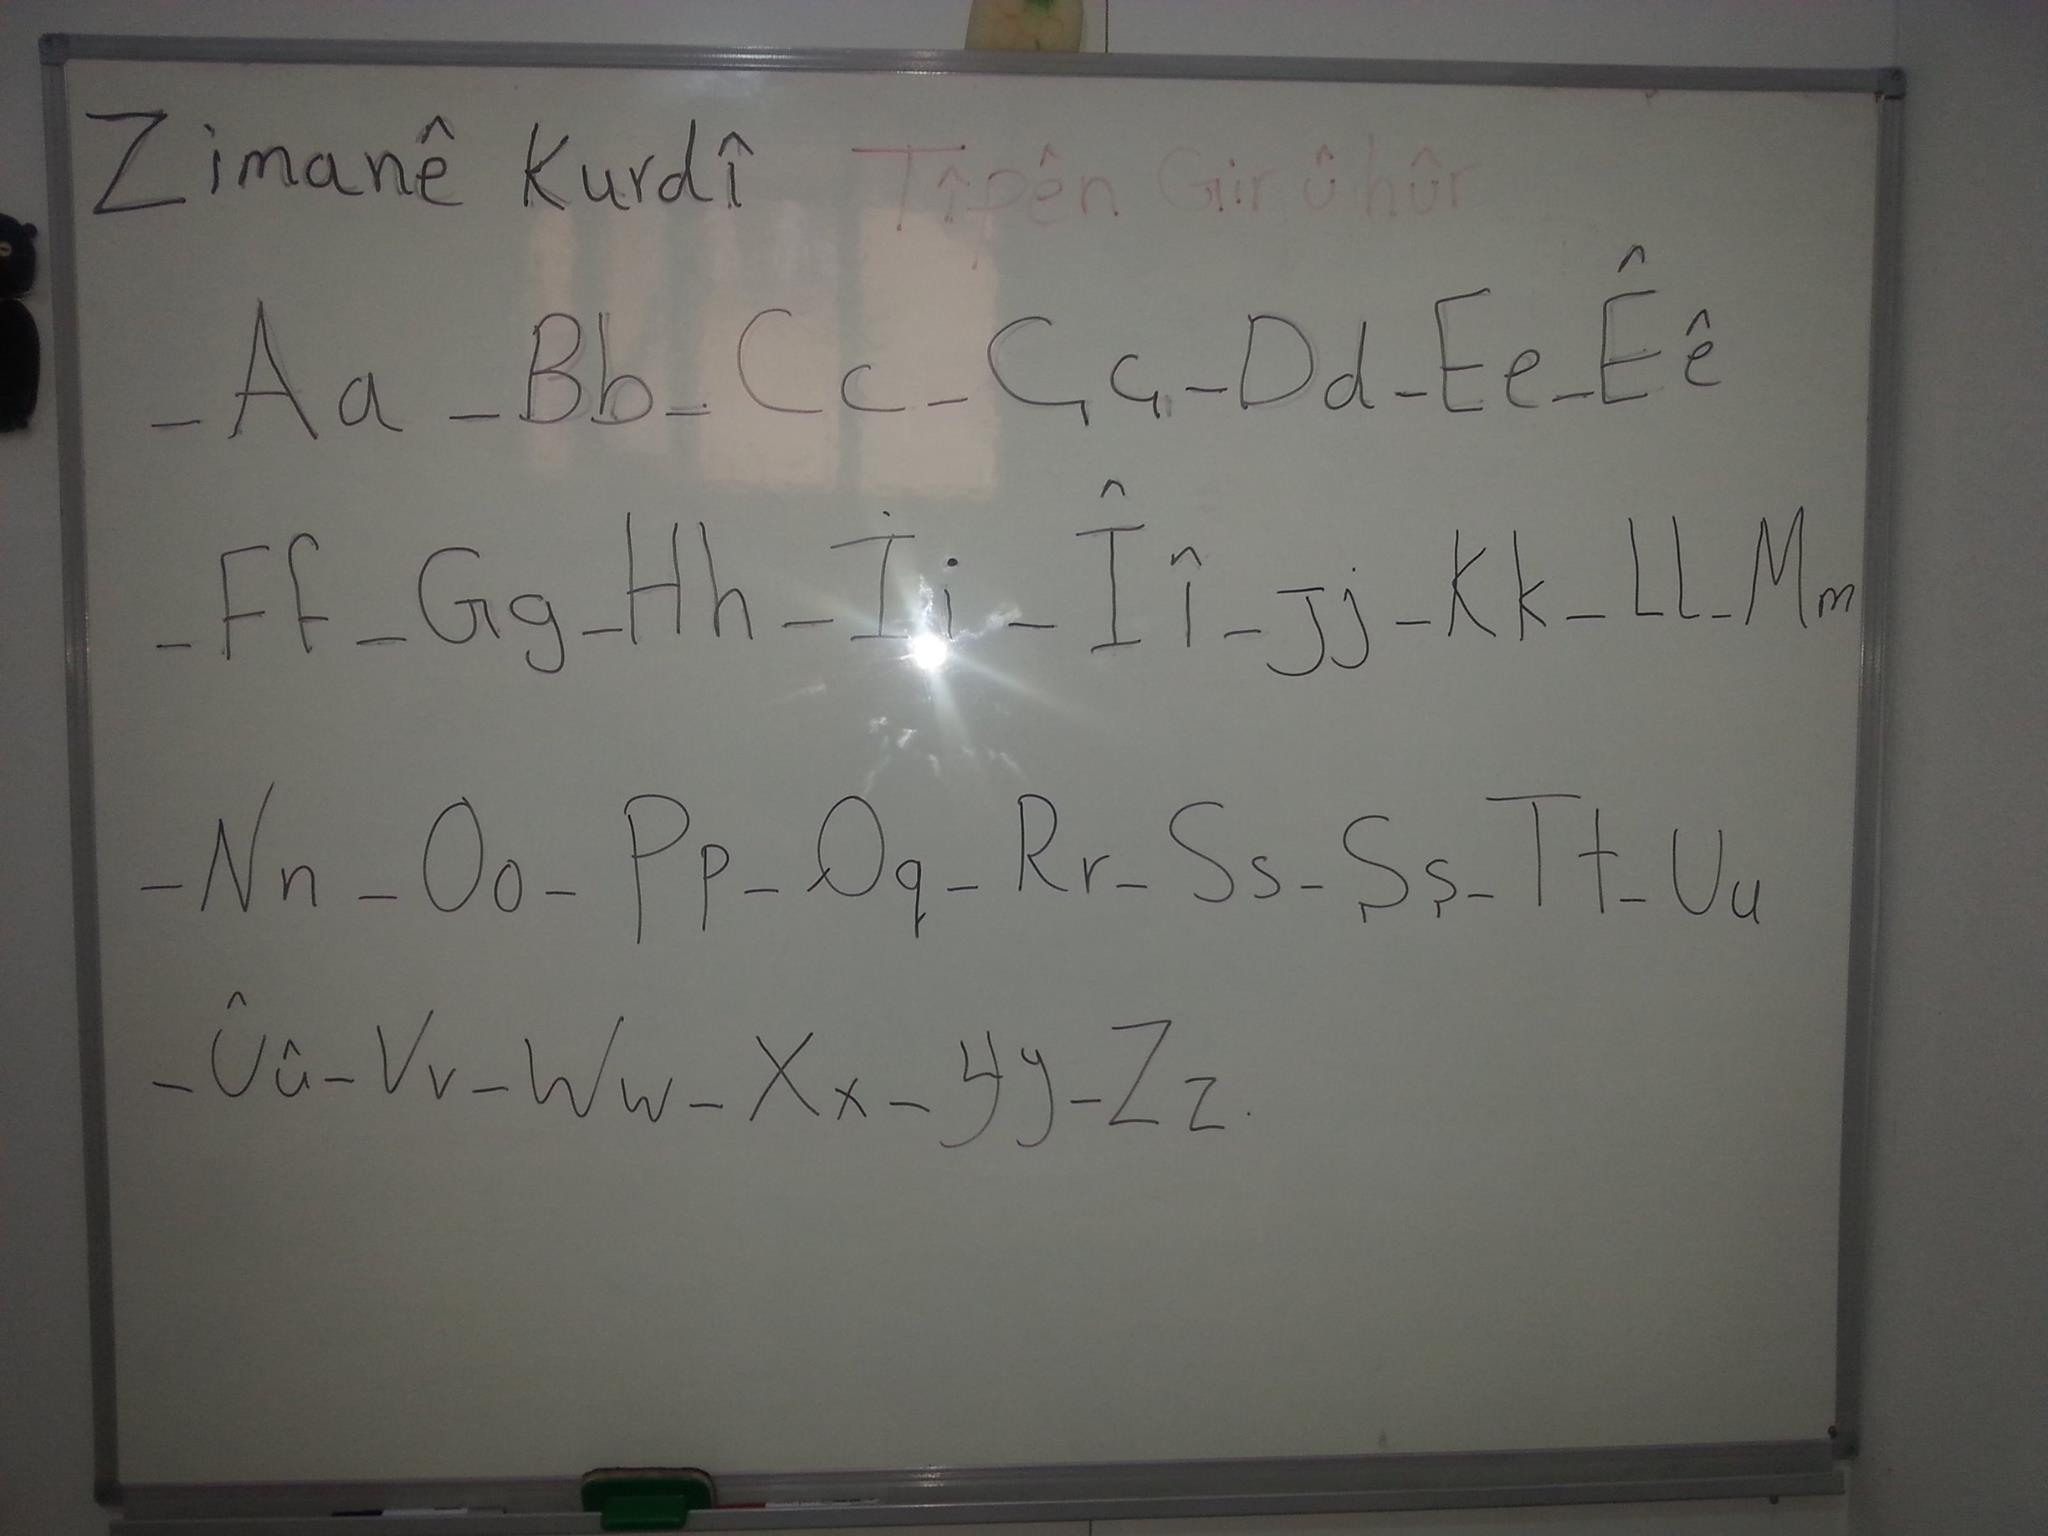 Zimanê Kurdî Tîpên Gir û hûr
_ Aa _ Bb _ Cc _ Çç _ Dd _ Ee _ Êê
_ Ff _ Gg _ Hh _ İi _ Îî _ Jj _ Kk _ Ll _ Mm
_ Nn _ Oo _ Pp _ Qq _ Rr _ Ss _ Şş _ Tt _ Uu
_ Ûû _ Vv _ Ww _ Xx _ Yy _ Zz.